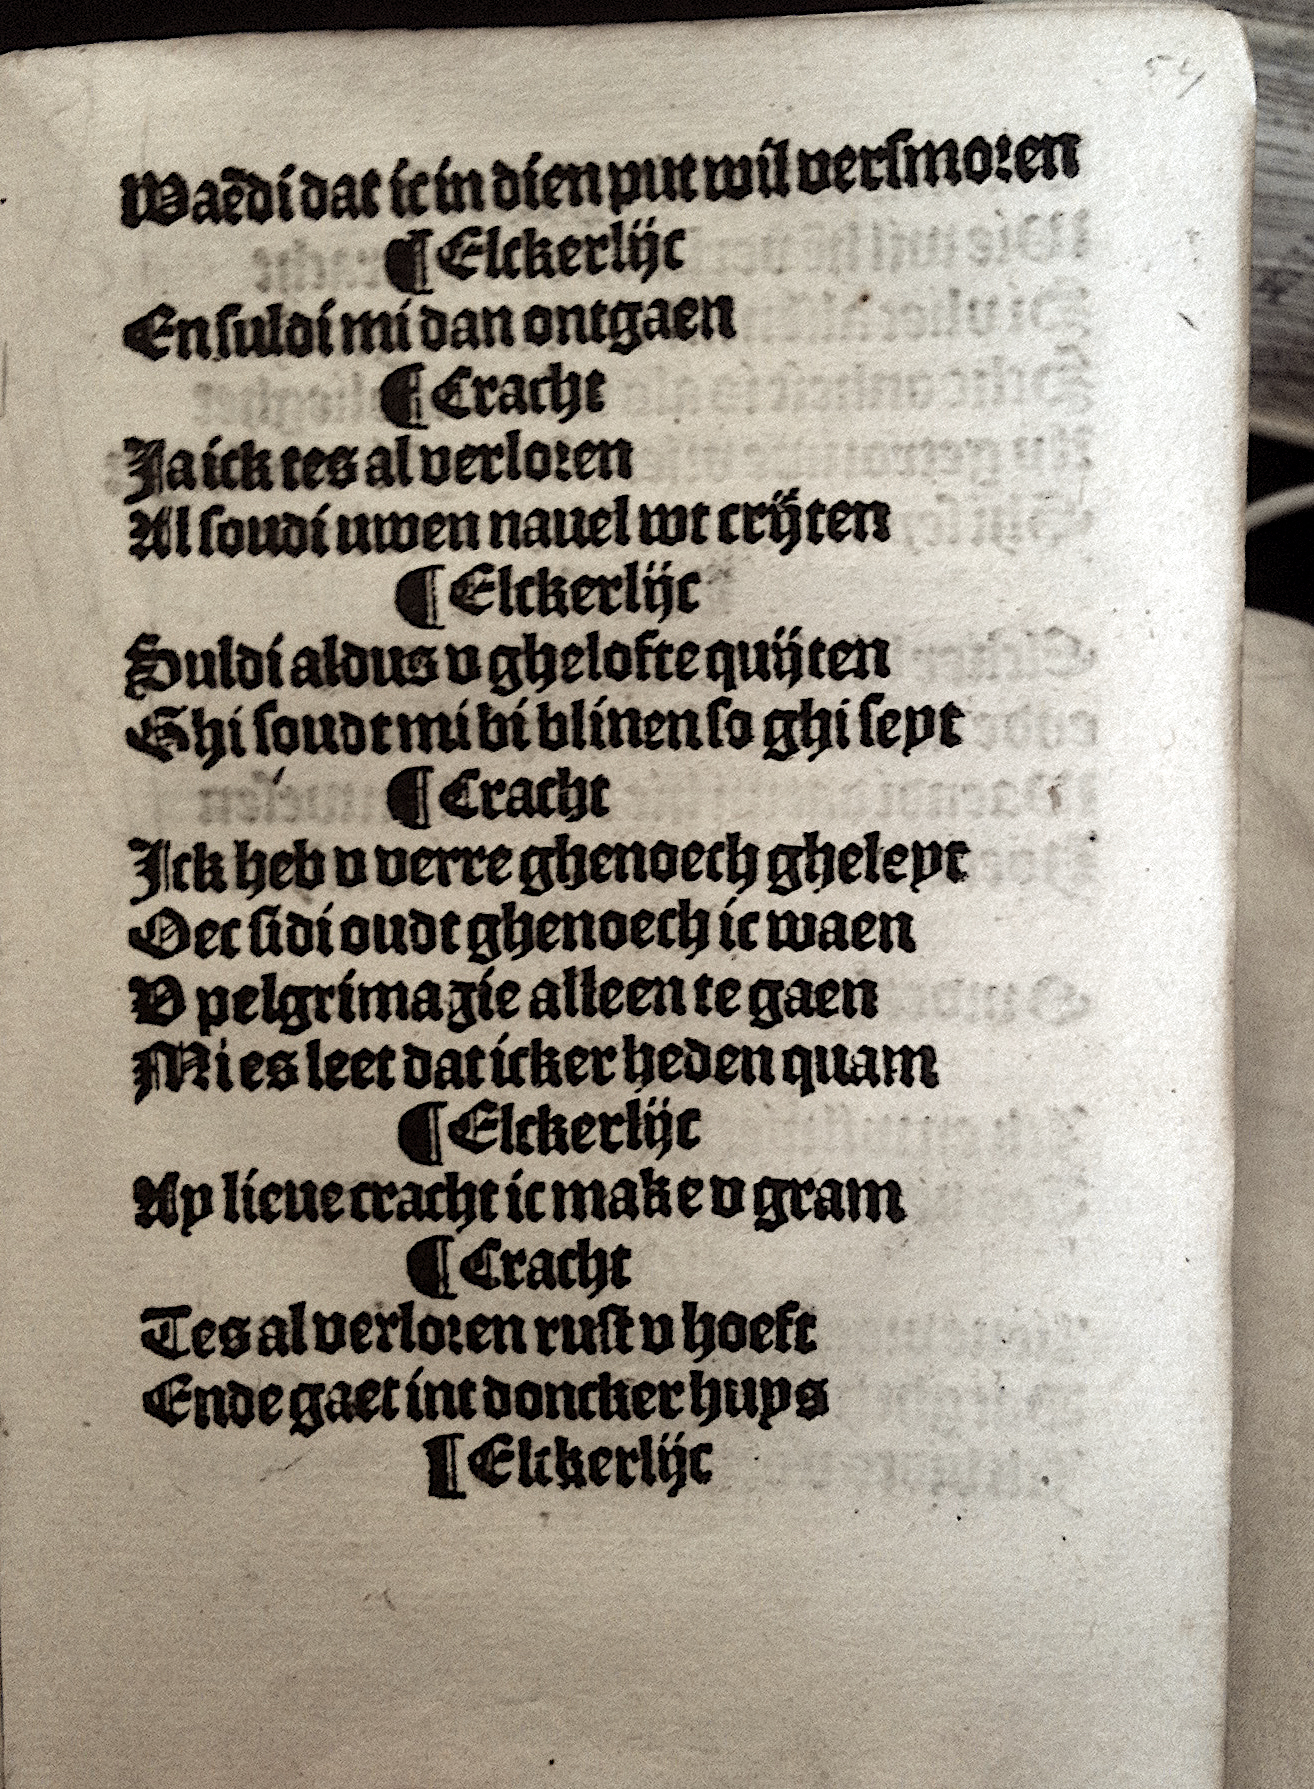 Waēdi dat ic in dien put wil versmoren
¶ Elckerlijc
En suldi mi dan ontgaen
¶ Cracht
Ja ick tes al verloren
Al soudi uwen nauel wt crijten
¶ Elckerlijc
Suldi aldus v ghelofte quijten
Ghi soudt mi bi bliuen so ghi seyt
¶ Cracht
Ick heb v verre ghenoech gheleyt
Oec sidi oudt ghenoech ic waen
V pelgrimagie alleen te gaen
Mi es leet dat icker heden quam
¶ Elckerlijc
Ay lieue cracht ic make v gram
¶ Cracht
Tes al verloren rust v hoeft
Ende gaet int doncker huys
¶ Elckerlijc